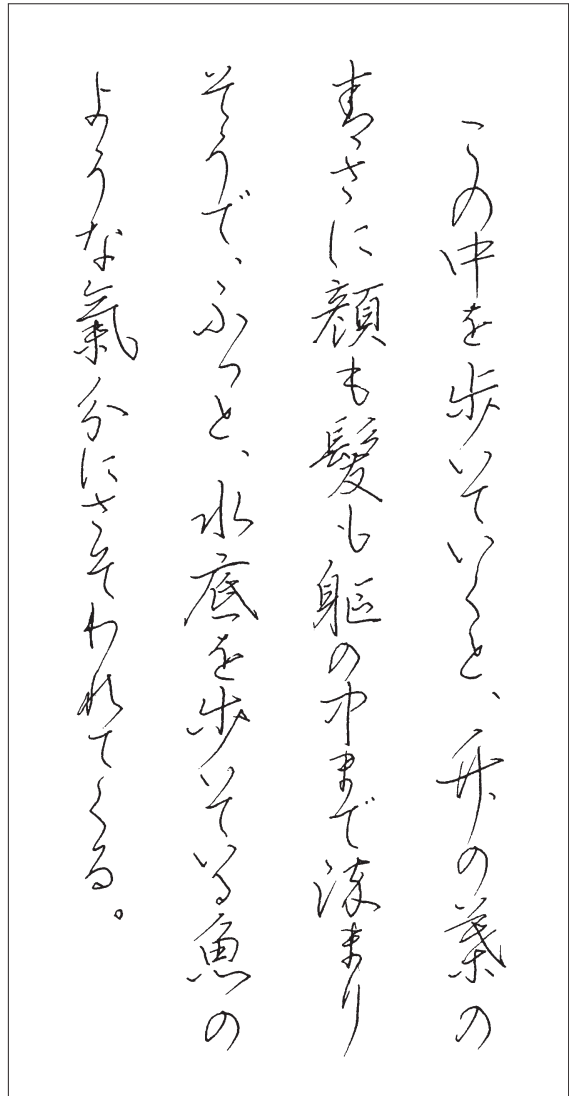 この中を歩いていくと、竹の葉の
青さに顔も髪も躯の中まで染まり
そうで、ふっと、水底を歩いている魚の
ような氣分にさそわれてくる。